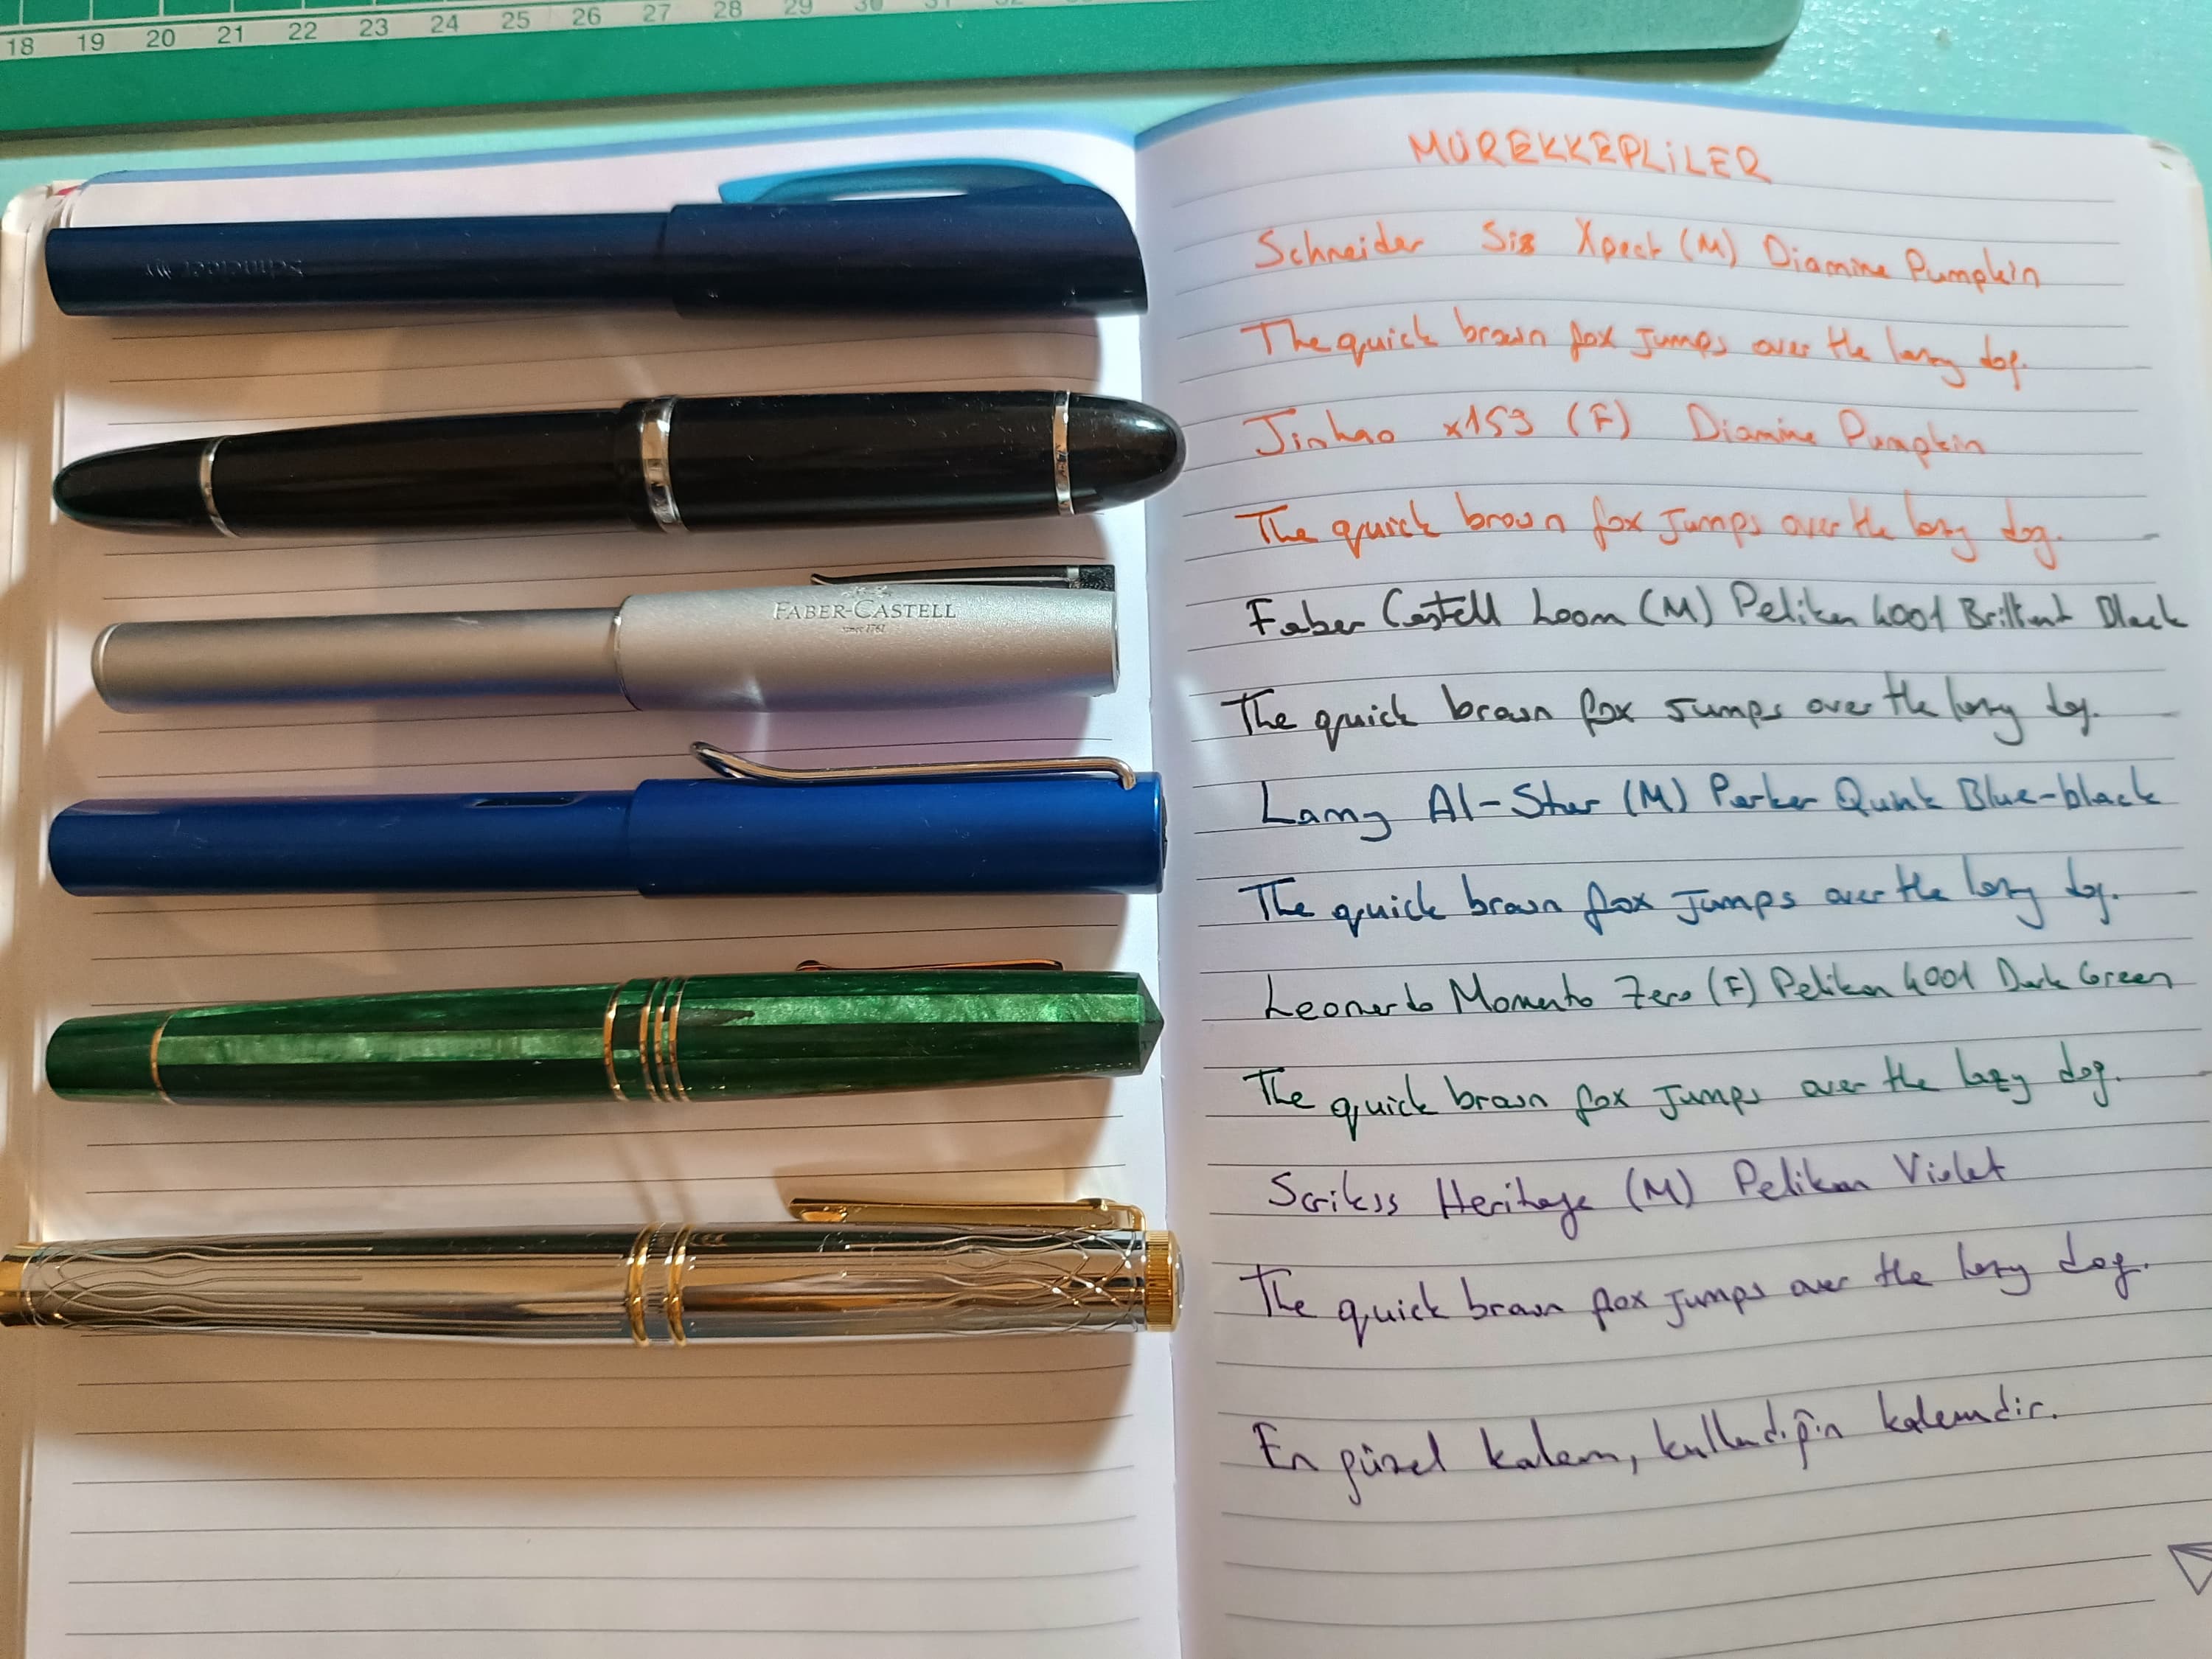 18 19 20 21 22 23 24 25 26 27 28 29 30 31 32
Schneider
FABER-CASTELL
since 1761
MÜREKKEPLİLER
Schneider Sis Xpect (M) Diamine Pumpkin
The quick brown fox jumps over the lazy dog.
Jinhao x159 (F) Diamine Pumpkin
The quick brown fox jumps over the lazy dog.
Faber Castell Loom (M) Pelikan 4001 Brilliant Black
The quick brown fox jumps over the lazy dog.
Lamy Al-Star (M) Parker Quink Blue-black
The quick brown fox jumps over the lazy dog.
Leonardo Momento Zero (F) Pelikan 4001 Dark Green
The quick brown fox jumps over the lazy dog.
Scrikss Heritage (M) Pelikan Violet
The quick brown fox jumps over the lazy dog.
En güzel kalem, kullandığın kalemdir.